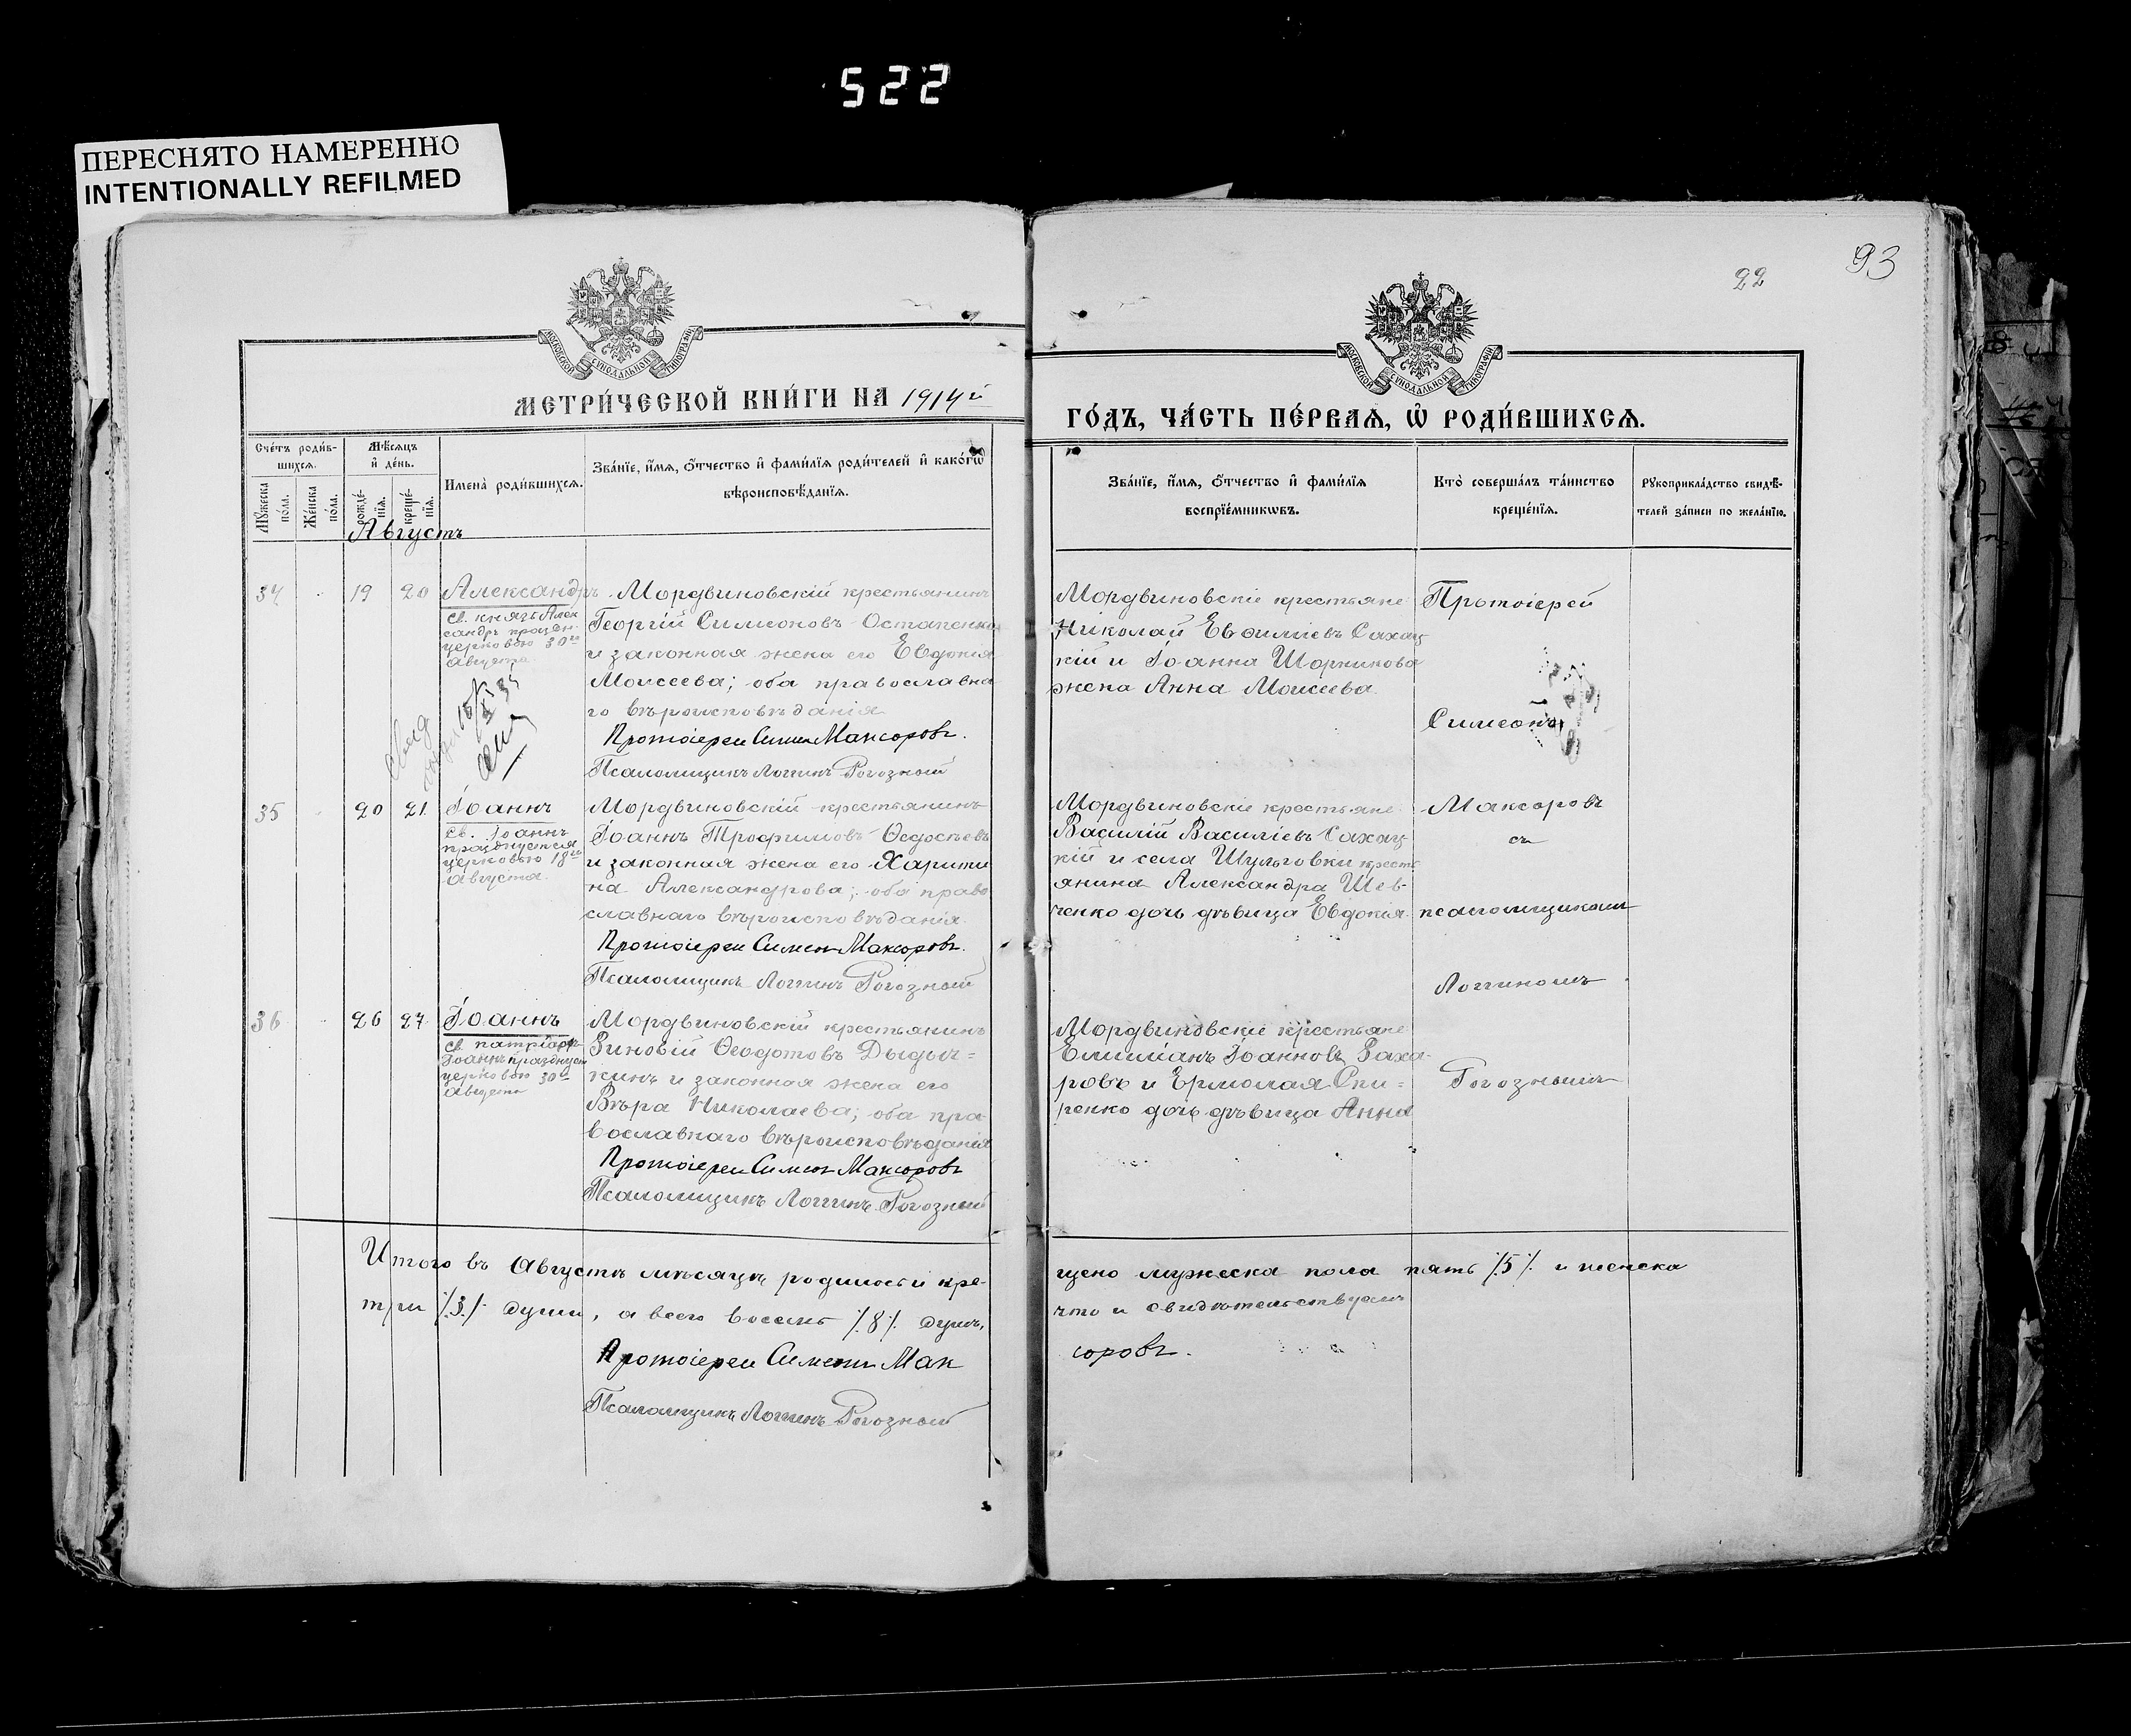 522
ПЕРЕСНЯТО НАМЕРЕННО
INTENTIONALLY REFILMED
93
22
МОСКОВСКОЙ СѴНОДАЛЬНОЙ ТИПОГРАФІИ
МОСКОВСКОЙ СѴНОДАЛЬНОЙ ТИПОГРАФІИ
МЕТРИ́ЧЕСКОЙ КНИ́ГИ НА 1914й
ГО́ДЪ, ЧА́СТЬ ПЕ́РВАѦ, Ѽ РОДИ́ВШИХСѦ.
Сче́тъ роди́в-
шихсѧ.
Мꙋ́жеска по́ла.
Же́нска по́ла.
Мѣ́сѧцъ
и҆ де́нь.
рожде́-
нїѧ.
креще́-
нїѧ.
Имена̀ роди́вшихсѧ.
Зва́нїе, и҆́мѧ, ѻ҆́тчество и҆ фами́лїѧ роди́телей и҆ како́гѡ
вѣроисповѣ́данїѧ.
Зва́нїе, и҆́мѧ, ѻ҆́тчество и҆ фами́лїѧ
воспрїе́мникѡвъ.
Кто̀ соверша́лъ та́инство
креще́нїѧ.
Рꙋкоприкла́дство свидѣ́-
телей за́писи по жела́нїю.
Августъ
34 19 20 Александръ
св. князь Алек
сандръ праздн.
церковью 30го
Августа
Мордвиновскій крестьянинъ
Георгій Симеоновъ Остапенко
и законная жена его Евдокія
Моисеева; оба православна
го вѣроисповѣданія
Протоіерей Симеон Максоровъ.
Псаломщикъ Логгинъ Рогозный
Мордвиновскіе крестьяне
Николай Евѳиміевъ Сахац
кій и Іоанна Шорникова
жена Анна Моисеева.
Протоіерей
Симеонъ
35 20 21 Іоаннъ
Св. Іоаннъ
празднуется
церковью 18го
Августа.
Мордвиновскій крестьянинъ
Іоаннъ Трофимовъ Ѳедосѣевъ
и законная жена его Харити
на Александрова; оба право
славнаго вѣроисповѣданія.
Протоіерей Симеон Максоровъ.
Псаломщикъ Логгинъ Рогозный
Мордвиновскіе крестьяне
Василій Василіевъ Сахац
кій и села Шульговки кресть
янина Александра Шев-
ченко дочь дѣвица Евдокія.
Максоровъ
съ
псаломщикомъ
Логгиномъ
36 26 27 Іоаннъ
св. патріарх
Іоаннъ празднует
церковью 30го
Августа
Мордвиновскій крестьянинъ
Зиновій Ѳеодотовъ Дыдыч=
кинъ и законная жена его
Вѣра Николаева; оба пра
вославнаго вѣроисповѣданія
Протоіерей Симеон Максоровъ
Псаломщикъ Логгинъ Рогозный
Мордвиновскіе крестьяне
Емиліанъ Іоанновъ Заха-
ровъ и Ермолая Спи=
ренко дочь дѣвица Анна
Рогознымъ
Итого въ Августѣ мѣсяцѣ родилось и кре-
щено мужеска пола пять /5/ и женска
три /3/ души, а всего восемь /8/ душъ,
что и свидѣтельствуемъ
Протоіерей Симеон Мак
соровъ.
Псаломщикъ Логгинъ Рогозный